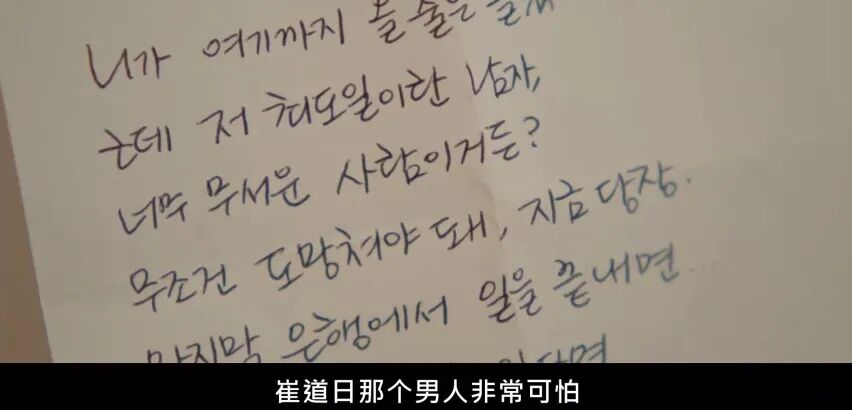 니가 여기까지 올 줄은
근데 저 최도일이란 남자,
너무 무서운 사람이거든?
무조건 도망쳐야 돼, 지금 당장.
마지막 은행에서 일을 끝내면...
崔道日那个男人非常可怕